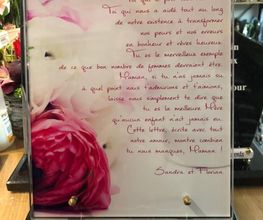 Toi qui nous a aidé tout au long
de notre existence à transformer
nos peurs et nos erreurs
en bonheur et rêves heureux.
Tu es le merveilleux exemple
de ce que bon nombre de femmes devraient être.
Maman, si tu n'as jamais su
à quel point nous t'admirions et t'aimons,
laisse nous simplement te dire que
tu es la meilleure Mère
qu'aucun enfant n'ait jamais eu.
Cette lettre, écrite avec tout
notre amour, montre combien
tu nous manques, Maman !
Sandra et Florian